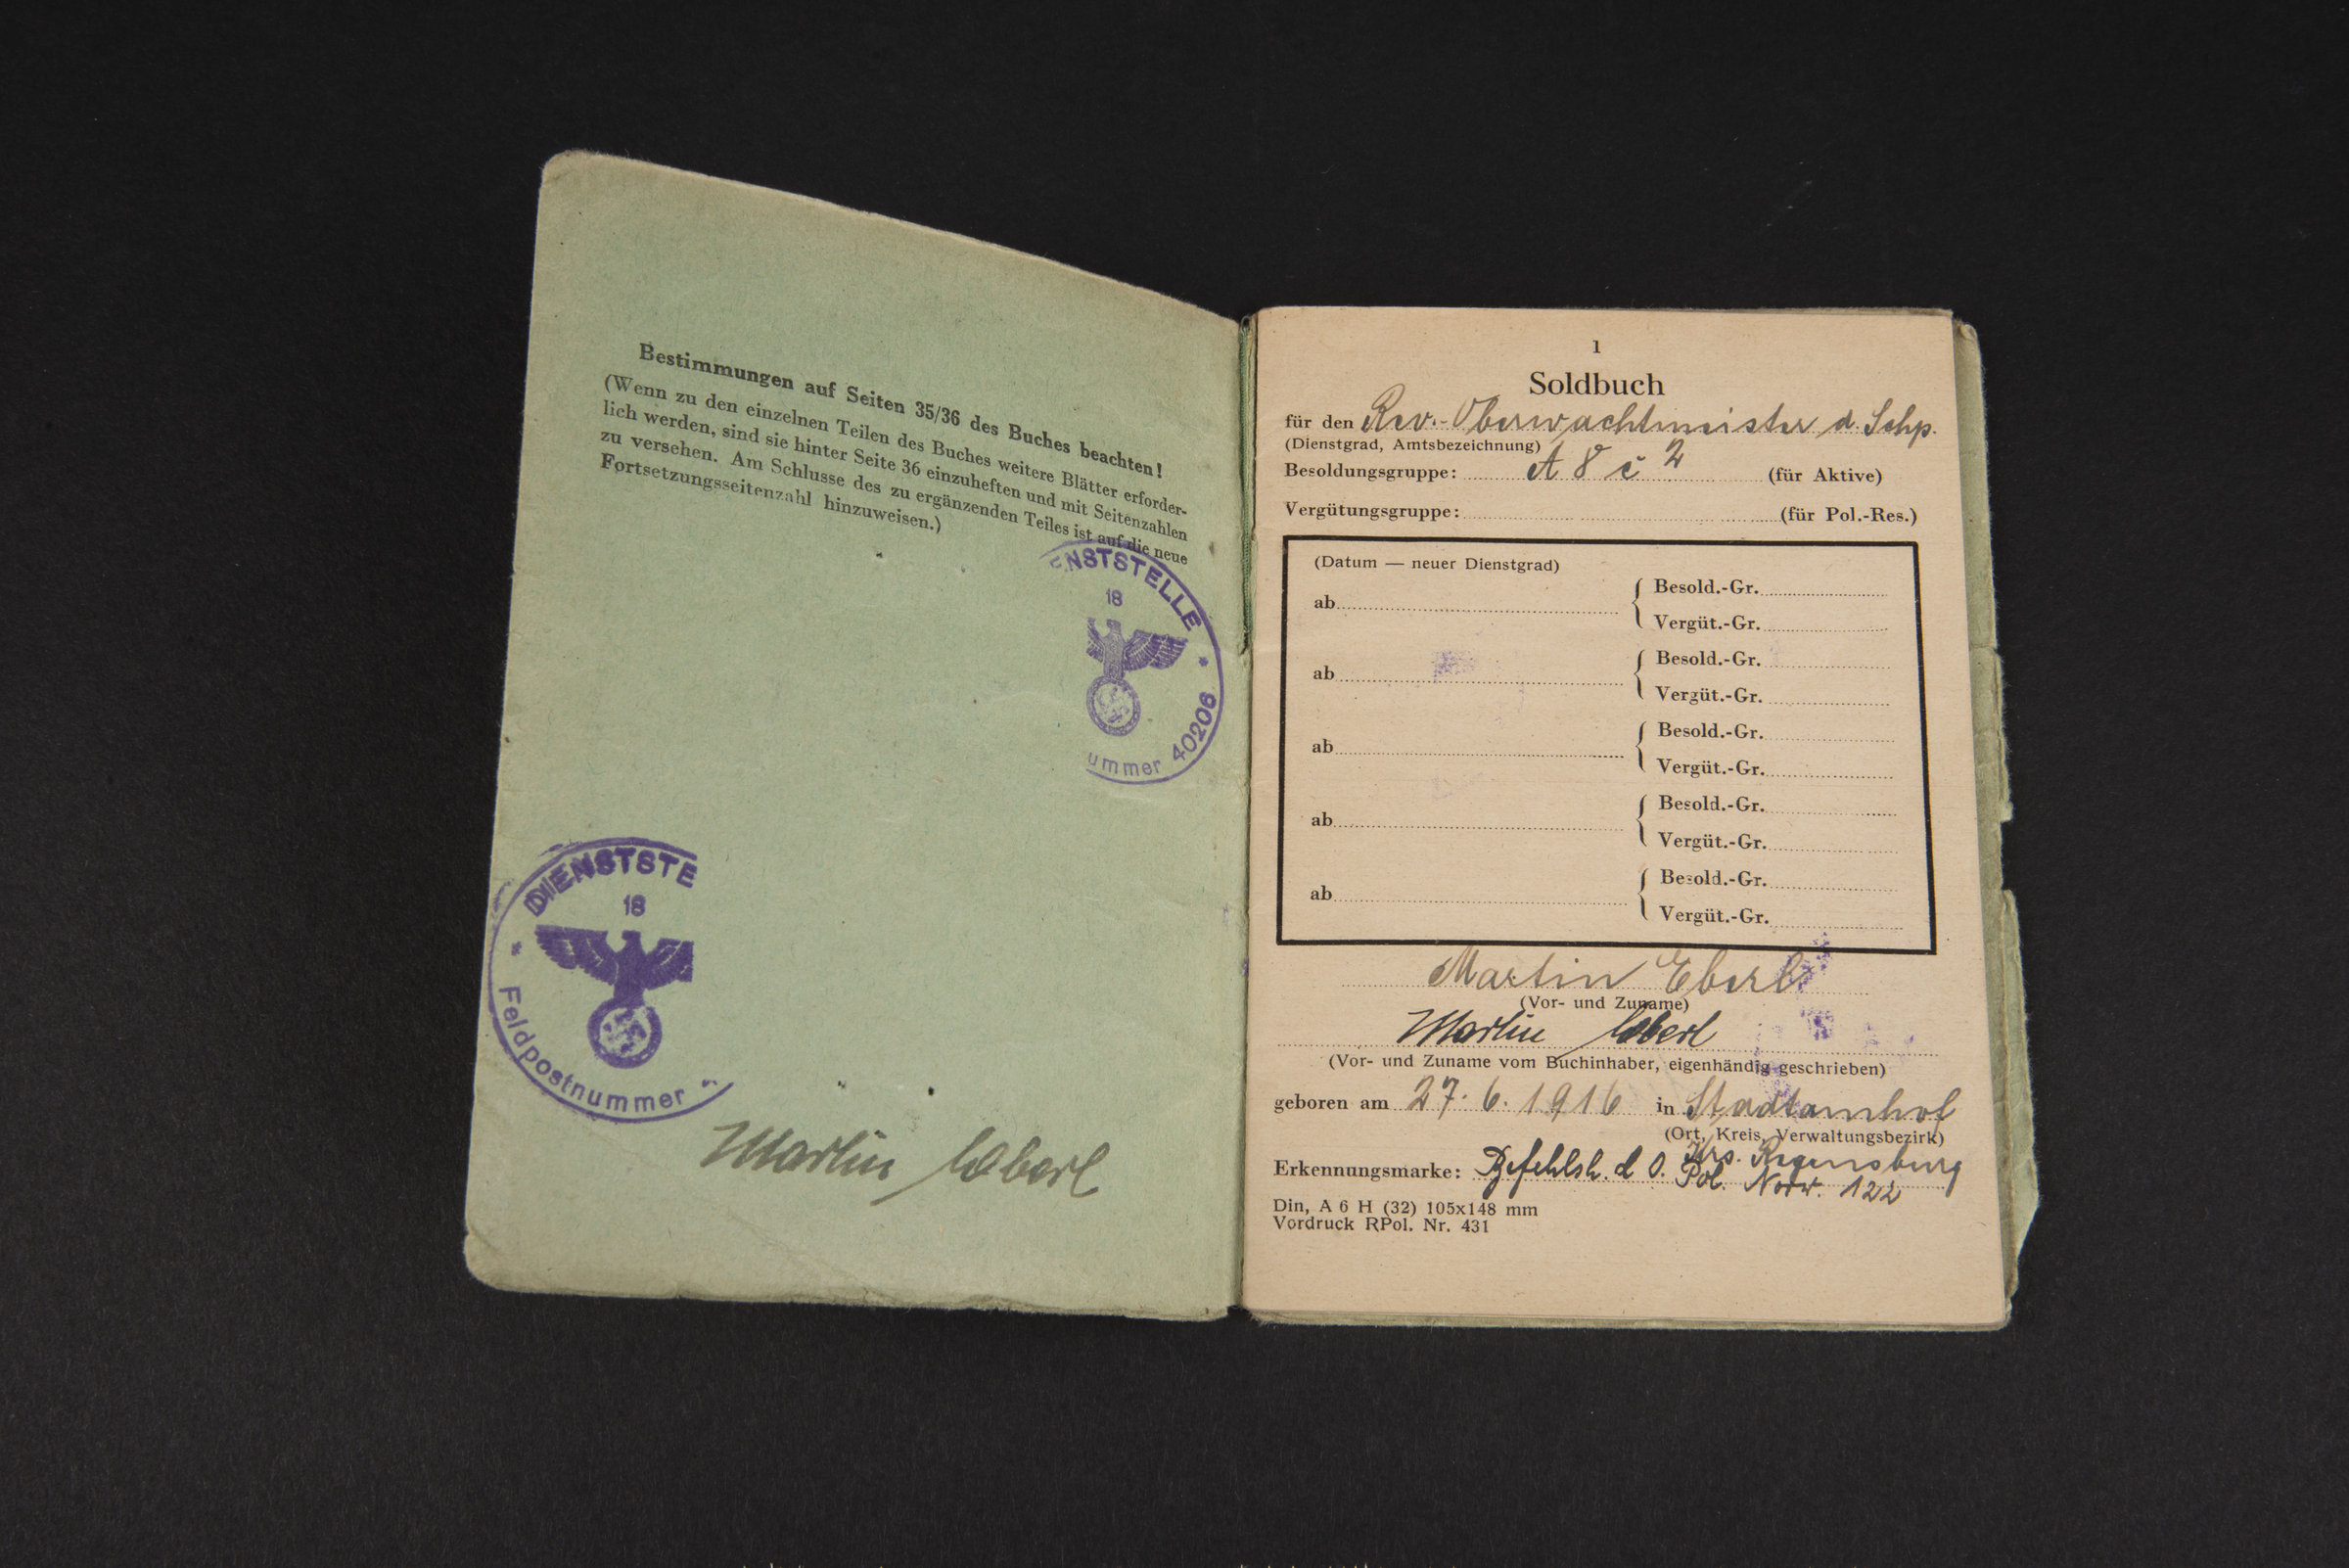 Bestimmungen auf Seiten 35/36 des Buches beachten!
(Wenn zu den einzelnen Teilen des Buches weitere Blätter erforder-
lich werden, sind sie hinter Seite 36 einzuheften und mit Seitenzahlen
zu versehen. Am Schlusse des zu ergänzenden Teiles ist auf die neue
Fortsetzungsseitenzahl hinzuweisen.)
ENSTSTELLE
18
ummer 40206
DIENSTSTE
18
Feldpostnummer
Martin Eberl
1
Soldbuch
für den Rev.-Oberwachtmeister d. Schp.
(Dienstgrad, Amtsbezeichnung)
Besoldungsgruppe: A 8 c 2 (für Aktive)
Vergütungsgruppe: (für Pol.-Res.)
(Datum — neuer Dienstgrad)
Besold.-Gr.
ab
Vergüt.-Gr.
Besold.-Gr.
ab
Vergüt.-Gr.
Besold.-Gr.
ab
Vergüt.-Gr.
Besold.-Gr.
ab
Vergüt.-Gr.
Besold.-Gr.
ab
Vergüt.-Gr.
Martin Eberl
(Vor- und Zuname)
Martin Eberl
(Vor- und Zuname vom Buchinhaber, eigenhändig geschrieben)
geboren am 27. 6. 1916 in Stadtamhof
(Ort, Kreis, Verwaltungsbezirk)
Krs. Regensburg
Erkennungsmarke: Befehlsh. d O. Pol. Norw. 122
Din, A 6 H (32) 105x148 mm
Vordruck RPol. Nr. 431